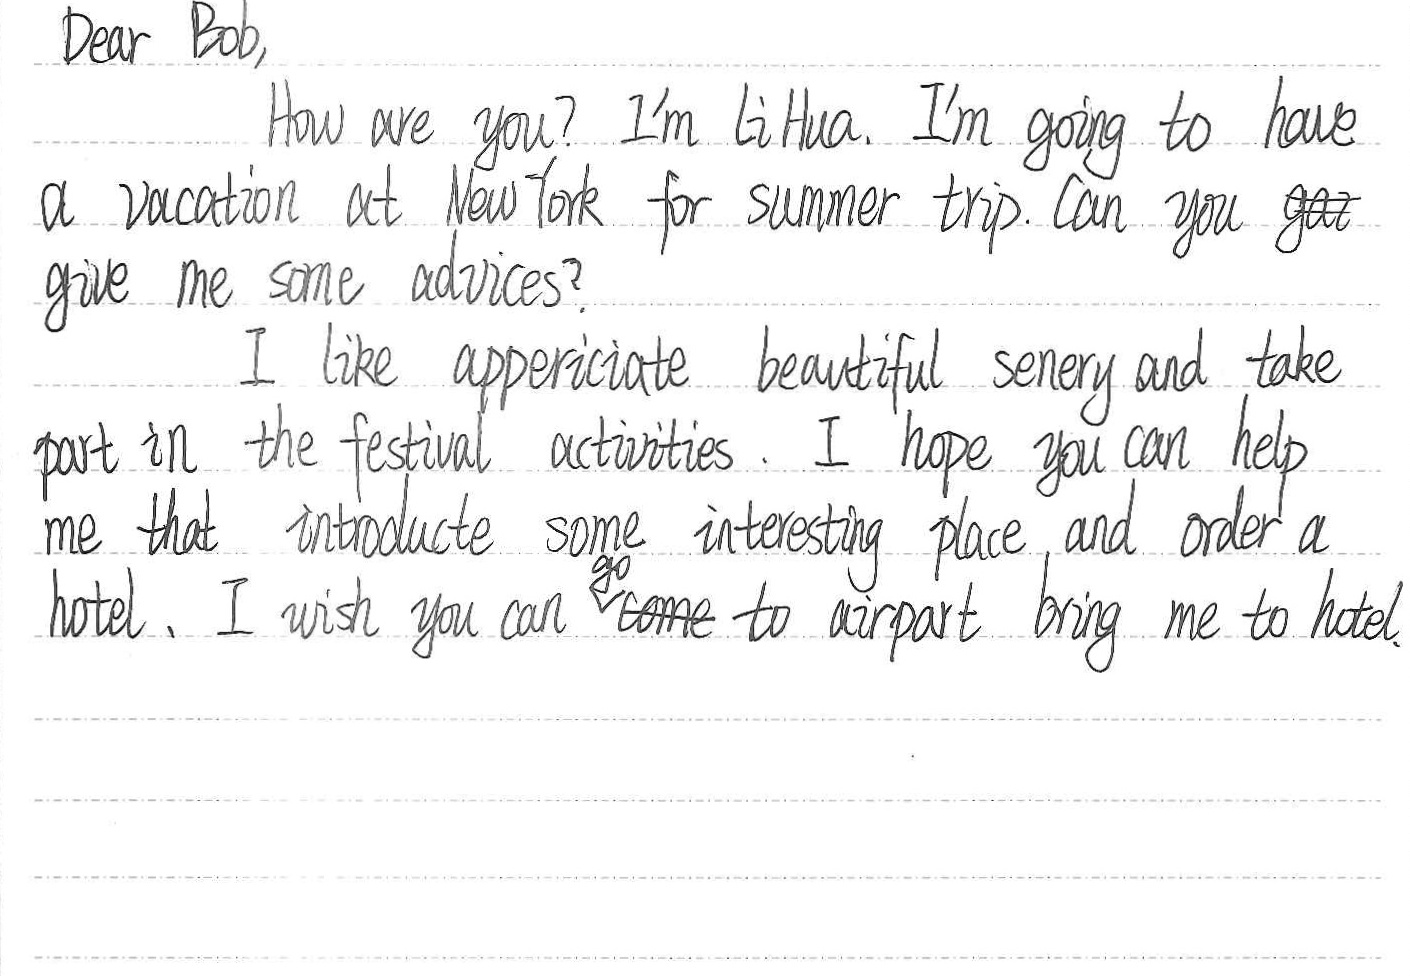 Dear Bob,
How are you? I'm Li Hua. I'm going to have
a vacation at New York for summer trip. Can you
give me some advices?
I like appericiate beautiful senery and take
part in the festival activities. I hope you can help
me that introducte some interesting place, and order a
hotel. I wish you can go to airpart bring me to hotel.